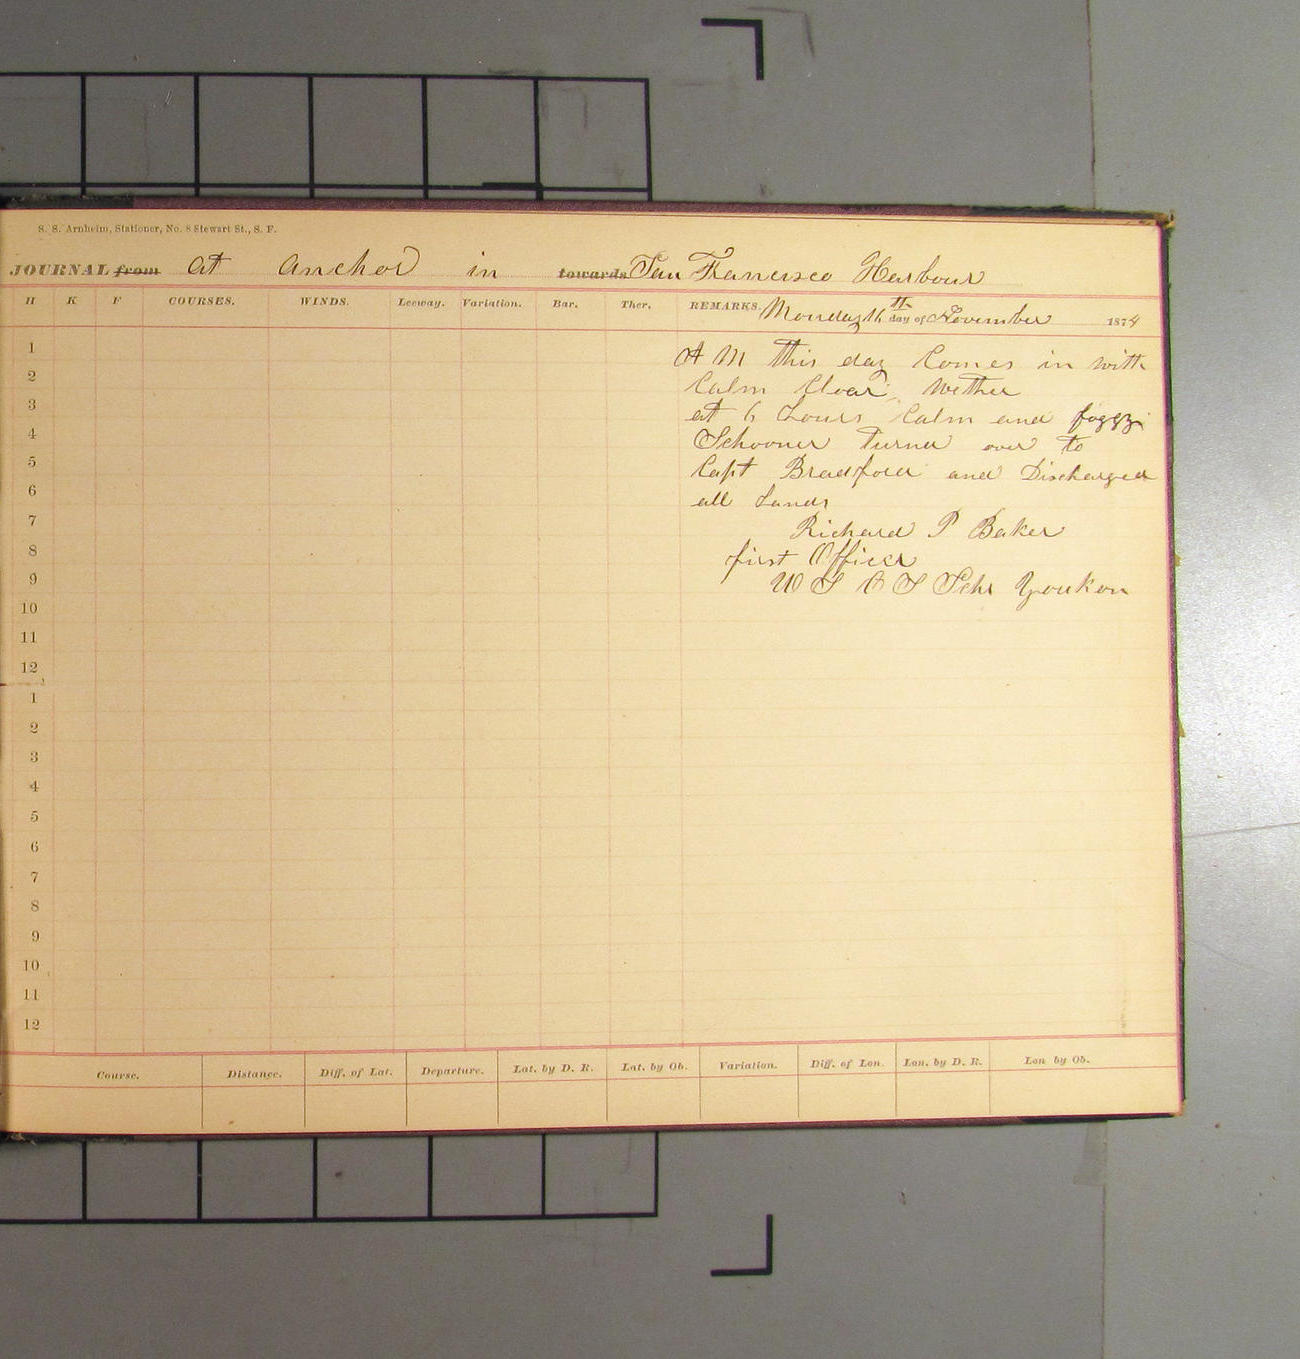 S. S. Arnheim, Stationer, No. 8 Stewart St., S. F.
JOURNAL from at anchor in towards San Francisco Harbour
H K F COURSES. WINDS. Leeway. Variation. Bar. Ther. REMARKS. Monday 16 th day of November 1874
1 A M this day Comes in with
2 Calm Clear Wether
3 at 6 hours Calm and foggy
4 Schooner turnd over to
5 Capt Bradford and Discharged
6 all hands
7 Richard P Baker
8 first Officer
9 U S C S Schr Youkon
10
11
12
1
2
3
4
5
6
7
8
9
10
11
12
Course. Distance. Diff. of Lat. Departure. Lat. by D. R. Lat. by Ob. Variation. Diff. of Lon. Lon. by D. R. Lon by Ob.